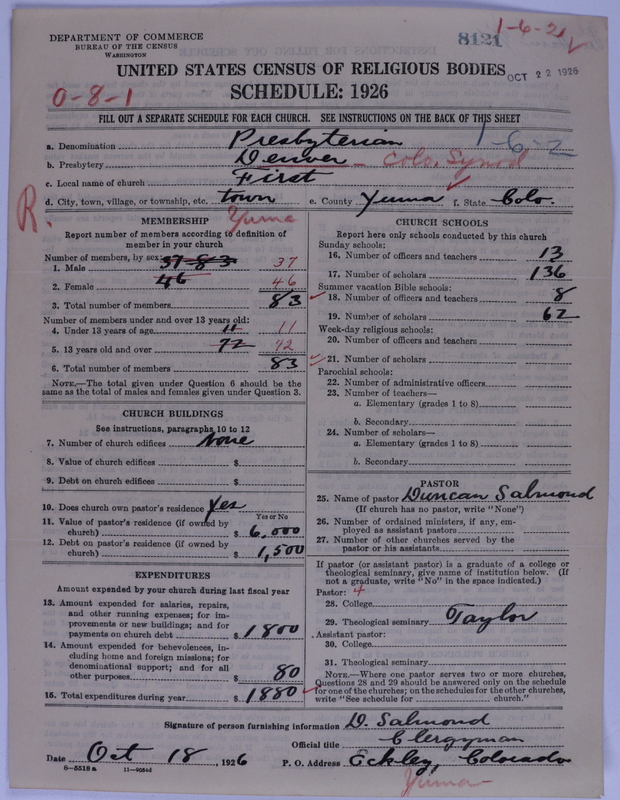 DEPARTMENT OF COMMERCE
BUREAU OF THE CENSUS
WASHINGTON
8121
1-6-2
UNITED STATES CENSUS OF RELIGIOUS BODIES
OCT 22 1926
0-8-1
SCHEDULE: 1926
FILL OUT A SEPARATE SCHEDULE FOR EACH CHURCH. SEE INSTRUCTIONS ON THE BACK OF THIS SHEET
a. Denomination Presbyterian
1-6-2
b. Presbytery Denver - Colo. Synod
c. Local name of church First
d. City, town, village, or township, etc. town e. County Yuma f. State Colo.
R.
Yuma
MEMBERSHIP
Report number of members according to definition of
member in your church
Number of members, by sex:
1. Male 37-83 37
2. Female 46 46
3. Total number of members 83
Number of members under and over 13 years old:
4. Under 13 years of age 11 11
5. 13 years old and over 72 72
6. Total number of members 83
NOTE.—The total given under Question 6 should be
same as the total of males and females given under Question 3.
CHURCH BUILDINGS
See instructions, paragraphs 10 to 12
7. Number of church edifices None
8. Value of church edifices $
9. Debt on church edifices $
10. Does church own pastor's residence? Yes
Yes or No
11. Value of pastor's residence (if owned by
church) $ 6,000
12. Debt on pastor's residence (if owned by
church) $ 1,500
EXPENDITURES
Amount expended by your church during last fiscal year
13. Amount expended for salaries, repairs,
and other running expenses; for im-
provements or new buildings; and for
payments on church debt $ 1800
14. Amount expended for benevolences, in-
cluding home and foreign missions; for
denominational support; and for all
other purposes $ 80
15. Total expenditures during year $ 1880
CHURCH SCHOOLS
Report here only schools conducted by this church
Sunday schools:
16. Number of officers and teachers 13
17. Number of scholars 136
Summer vacation Bible schools:
18. Number of officers and teachers 8
19. Number of scholars 62
Week-day religious schools:
20. Number of officers and teachers
21. Number of scholars
Parochial schools:
22. Number of administrative officers
23. Number of teachers—
a. Elementary (grades 1 to 8)
b. Secondary
24. Number of scholars—
a. Elementary (grades 1 to 8)
b. Secondary
PASTOR
25. Name of pastor Duncan Salmond
(If church has no pastor, write "None")
26. Number of ordained ministers, if any, em-
ployed as assistant pastors
27. Number of other churches served by the
pastor or his assistants
If pastor (or assistant pastor) is a graduate of a college or
theological seminary, give name of institution below. (If
not a graduate, write "No" in the space indicated.)
Pastor: 4
28. College
29. Theological seminary Taylor
Assistant pastor:
30. College
31. Theological seminary
NOTE.—Where one pastor serves two or more churches,
Questions 28 and 29 should be answered only on the schedule
for one of the churches; on the schedules for the other churches,
write "See schedule for church."
Signature of person furnishing information D. Salmond
Official title Clergyman
Date Oct 18, 1926 P. O. Address Eckley, Colorado
Yuma